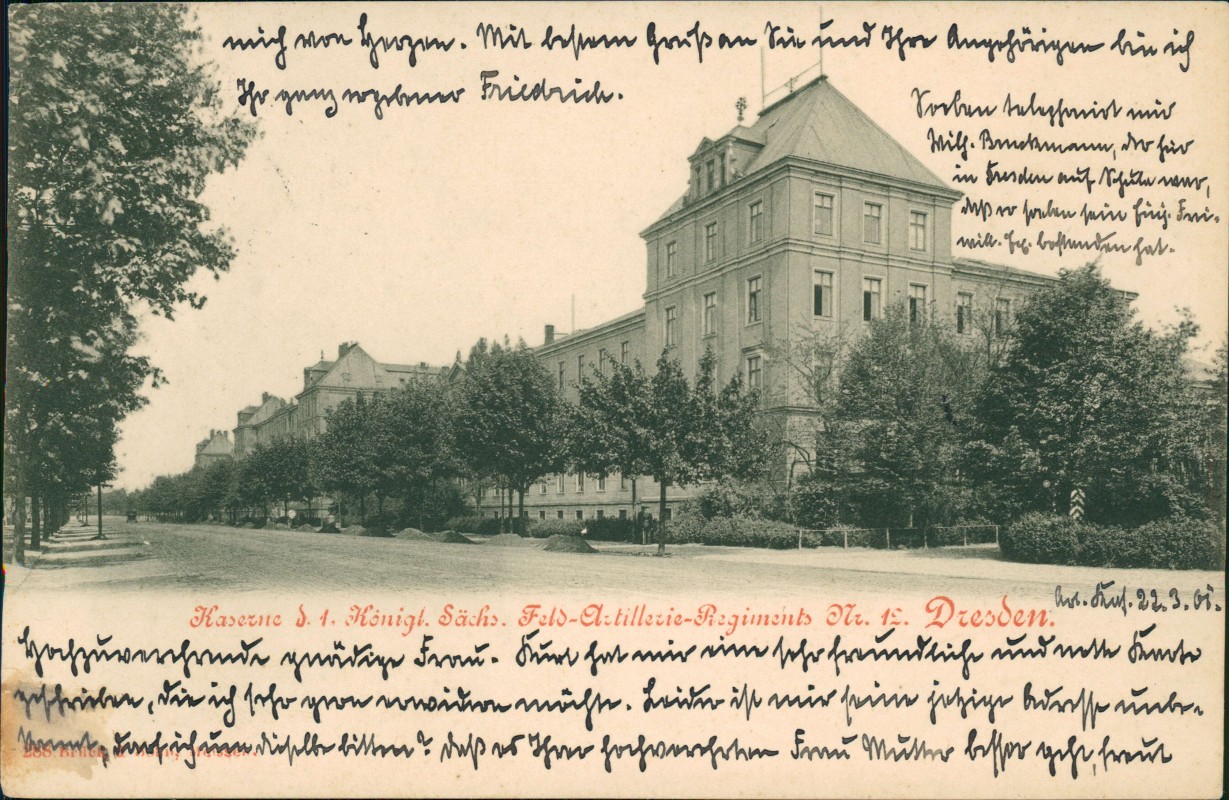 mich von Herzen. Mit bestem Gruß an Sie und Ihre Angehörigen bin ich
Ihr ganz ergebener Friedrich.
Soeben telephonirt mir
Wilh. Bruckmann, der hier
in Dresden auf Schule war,
daß er soeben sein Einj. Frei-
will. Ex. bestanden hat.
Kaserne d. 1. Königl. Sächs. Feld-Artillerie-Regiments Nr. 12. Dresden.
22.3.01.
Hochzuverehrende gnädige Frau. Kurt hat mir eine sehr freundliche und nette Karte
geschrieben, die ich sehr gern erwidern möchte. Leider ist mir seine jetzige Adresse unbe-
kannt, darf ich um dieselbe bitten? Daß es Ihrer hochverehrten Frau Mutter besser geht, freut
288